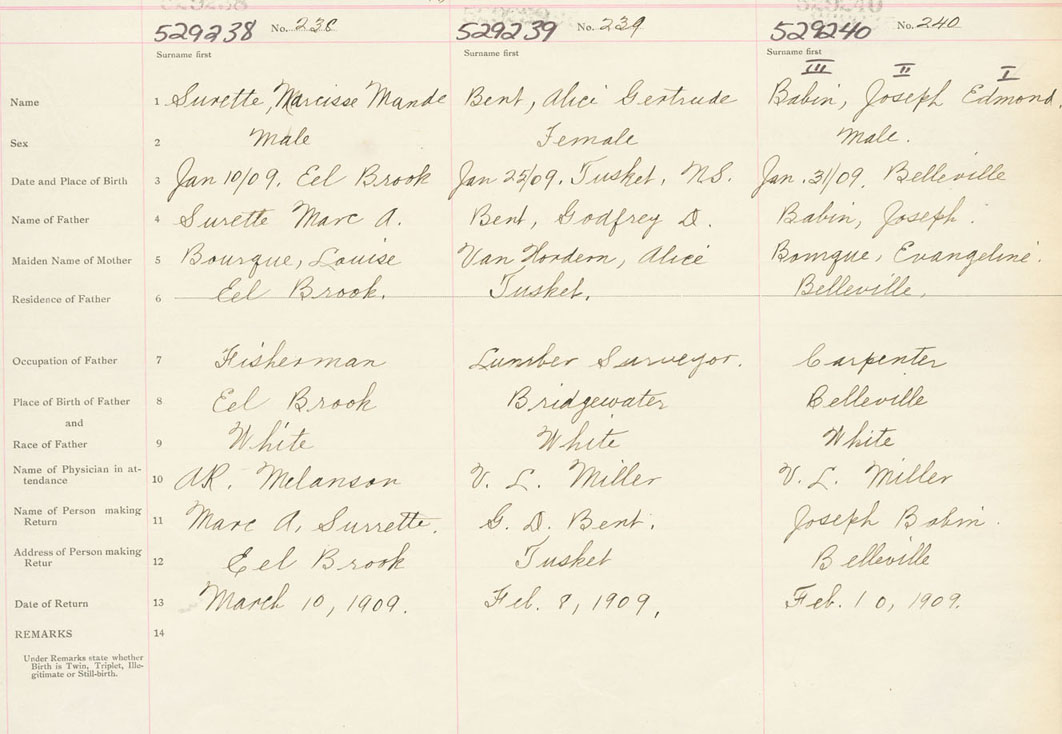 529238 No. 238 529239 No. 239 529240 No. 240
Surname first Surname first Surname first
III II I
Name 1 Surette, Narcisse Mande Bent, Alice Gertrude Babin, Joseph Edmond.
Sex 2 Male Female Male.
Date and Place of Birth 3 Jan 10/09. Eel Brook Jan 25/09. Tusket, N.S. Jan. 31/09. Belleville
Name of Father 4 Surette Marc A. Bent, Godfrey D. Babin, Joseph.
Maiden Name of Mother 5 Bourque, Louise Van Hordem, Alice Bourque, Evangeline.
Residence of Father 6 Eel Brook. Tusket. Belleville.
Occupation of Father 7 Fisherman Lumber Surveyor. Carpenter
Place of Birth of Father 8 Eel Brook Bridgewater Belleville
and
Race of Father 9 White White White
Name of Physician in at-
tendance 10 A.R. Melanson V. L. Miller V. L. Miller
Name of Person making
Return 11 Marc A. Surrette. G. D. Bent. Joseph Babin.
Address of Person making
Retur 12 Eel Brook Tusket Belleville
Date of Return 13 March 10, 1909. Feb. 8, 1909. Feb. 10, 1909.
REMARKS 14
Under Remarks state whether
Birth is Twin, Triplet, Ille-
gitimate or Still-birth.